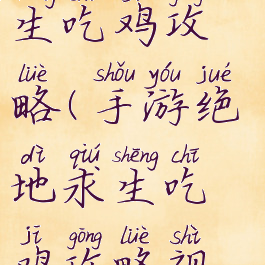 生吃鸡攻
lüè shǒu yóu jué
略(手游绝
dì qiú shēng chī
地求生吃
jī gōng lüè shì
鸡攻略视